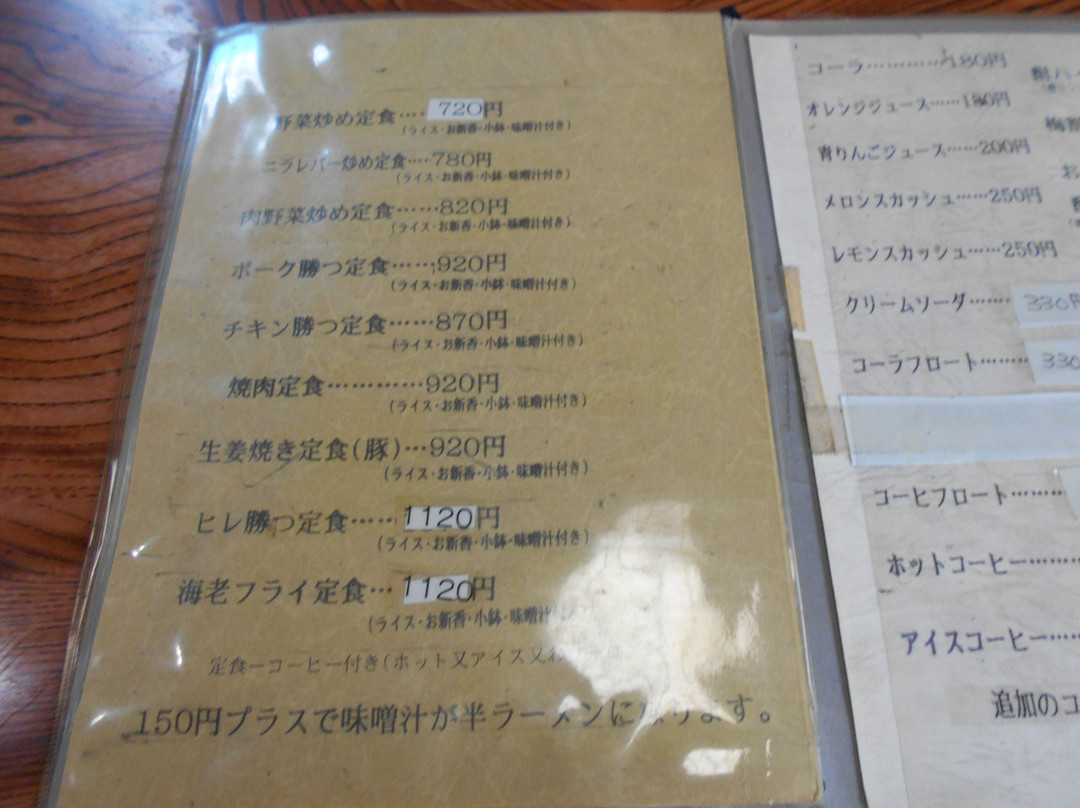 野菜炒め定食‥‥720円
(ライス・お新香・小鉢・味噌汁付き)
ニラレバー炒め定食‥‥780円
(ライス・お新香・小鉢・味噌汁付き)
肉野菜炒め定食……820円
(ライス・お新香・小鉢・味噌汁付き)
ポーク勝つ定食……920円
(ライス・お新香・小鉢・味噌汁付き)
チキン勝つ定食……870円
(ライス・お新香・小鉢・味噌汁付き)
焼肉定食…………920円
(ライス・お新香・小鉢・味噌汁付き)
生姜焼き定食(豚)…920円
(ライス・お新香・小鉢・味噌汁付き)
ヒレ勝つ定食……1120円
(ライス・お新香・小鉢・味噌汁付き)
海老フライ定食…1120円
(ライス・お新香・小鉢・味噌汁付
定食ーコーヒー付き(ホット又アイス又
150円プラスで味噌汁が半ラーメンになります。
コーラ…………180円
オレンジジュース……180円
青りんごジュース……200円
メロンスカッシュ……250円
レモンスカッシュ……250円
クリームソーダ……330円
コーラフロート………330
コーヒフロート………
ホットコーヒー………
アイスコーヒー……
追加のコ